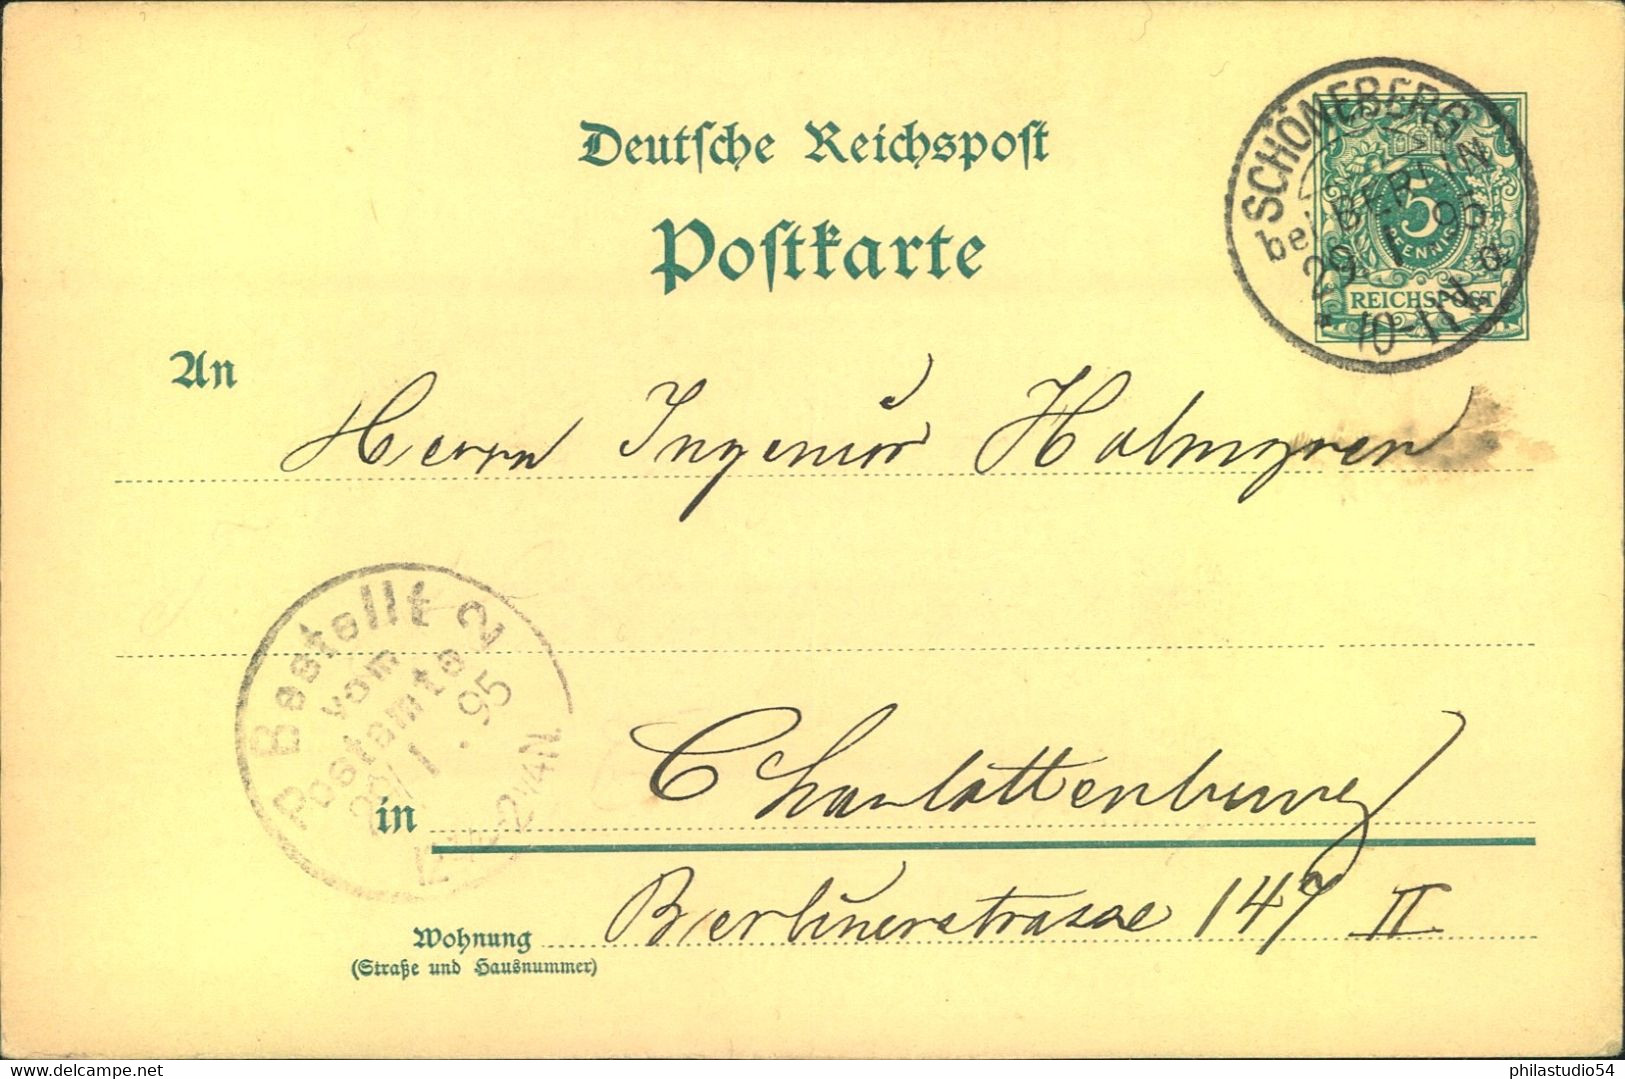 Deutsche Reichspost
Postkarte
SCHÖNEBERG
bei BERLIN
29 1 95
* 10-11 V. a
5
PFENNIG
REICHSPOST
An
Herrn Ingenieur Holmgren
Bestellt
vom
Postamte 2
29/1.95
2¼N.
in Charlottenburg
Berlinerstrasse 147 II
Wohnung
(Straße und Hausnummer)
philastudio54